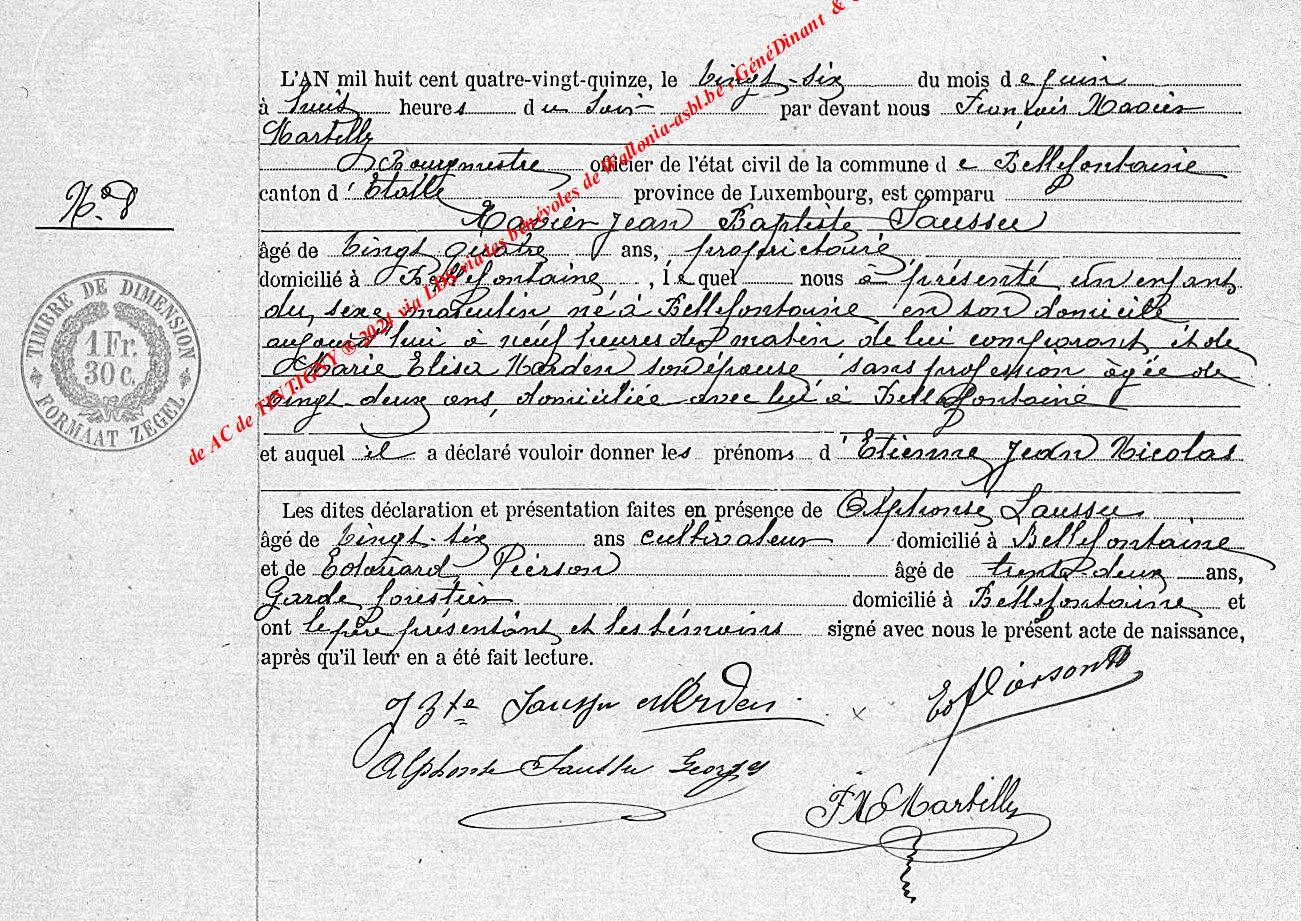 de AC de TINTIGNY ® 2021 via LDS via les bénévoles de Wallonia-asbl.be, GénéDinant &
L'AN mil huit cent quatre-vingt-quinze, le vingt-six du mois de juin
à huit heures du soir par devant nous François Xavier
Martilly
Bourgmestre officier de l'état civil de la commune de Bellefontaine
N° 8
canton d'Etalle province de Luxembourg, est comparu
Xavier Jean Baptiste Saussu
âgé de vingt quatre ans, propriétaire
domicilié à Bellefontaine, lequel nous a présenté un enfant
du sexe masculin né à Bellefontaine en son domicile
aujourd'hui à neuf heures du matin de lui comparant et de
Marie Elisa Narden son épouse, sans profession âgée de
vingt deux ans, domiciliée avec lui à Bellefontaine
TIMBRE DE DIMENSION
1 Fr.
30 C.
FORMAAT ZEGEL
et auquel il a déclaré vouloir donner les prénoms d'Etienne Jean Nicolas
Les dites déclaration et présentation faites en présence de Alphonse Saussu
âgé de vingt-six ans cultivateur domicilié à Bellefontaine
et de Edouard Pierson âgé de trente-deux ans,
Garde forestier domicilié à Bellefontaine et
ont le père présentant et les témoins signé avec nous le présent acte de naissance,
après qu'il leur en a été fait lecture.
J Bte Saussu Ed Pierson
Alphonse Saussu Georges
F X Martilly